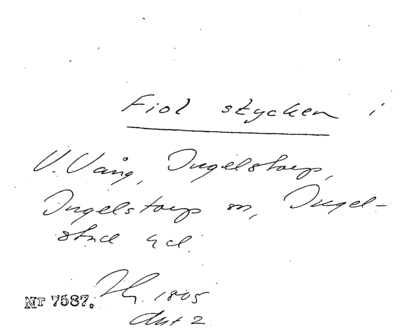 Fiol stycken i
V. Vång, Ingelstorp,
Ingelstorp sn, Ingel-
stad hd.
Nr 7587. 1805